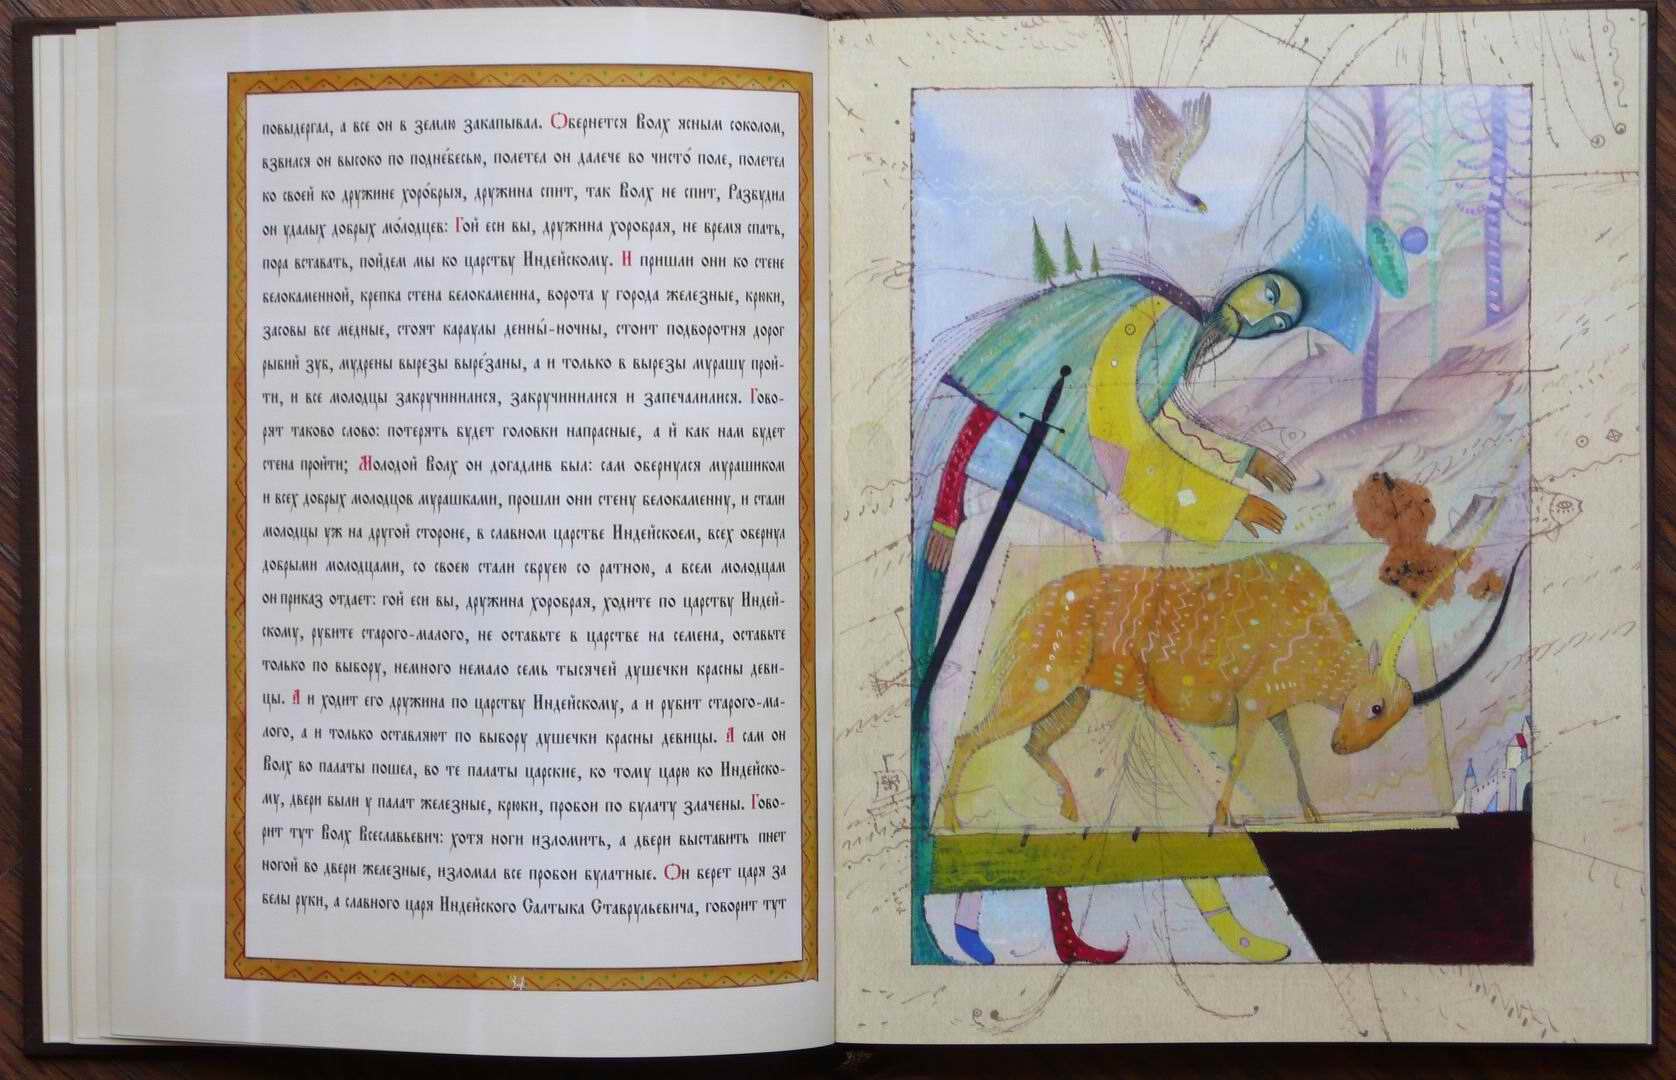 повыдергал, а все он в землю закапывал. Обернется Волх ясным соколом,
взвился он высоко по подне́бесью, полетел он далече во чисто́ поле, полетел
ко своей ко дружине хоро́брыя, дружина спит, так Волх не спит, Разбудил
он удалых добрых мо́лодцев: Гой еси вы, дружина хоробрая, не время спать,
пора вставать, пойдем мы ко царству Индейскому. И пришли они ко стене
белокаменной, крепка стена белокаменна, ворота у города железные, крюки,
засовы все медные, стоят караулы денны́-ночны, стоит подворотня дорог
рыбий зуб, мудрены вырезы выре́заны, а и только в вырезы мурашу прой-
ти, и все молодцы закручинилися, закручинилися и запечалилися. Гово-
рят таково слово: потерять будет головки напрасные, а й как нам будет
стена пройти; Молодой Волх он догадлив был: сам обернулся мурашиком
и всех добрых молодцов мурашками, прошли они стену белокаменну, и стали
молодцы уж на другой стороне, в славном царстве Индейскоем, всех обернул
добрыми молодцами, со своею стали сбруею со ратною, а всем молодцам
он приказ отдает: гой еси вы, дружина хоробрая, ходите по царству Индей-
скому, рубите старого-малого, не оставьте в царстве на семена, оставьте
только по выбору, немного немало семь тысячей душечки красны деви-
цы. А и ходит его дружина по царству Индейскому, а и рубит старого-ма-
лого, а и только оставляют по выбору душечки красны девицы. А сам он
Волх во палаты пошел, во те палаты царские, ко тому царю ко Индейско-
му, двери были у палат железные, крюки, пробои по булату злачены. Гово-
рит тут Волх Всеславьевич: хотя ноги изломить, а двери выставить пнет
ногой во двери железные, изломал все пробои булатные. Он берет царя за
белы руки, а славного царя Индейского Салтыка Ставрульевича, говорит тут